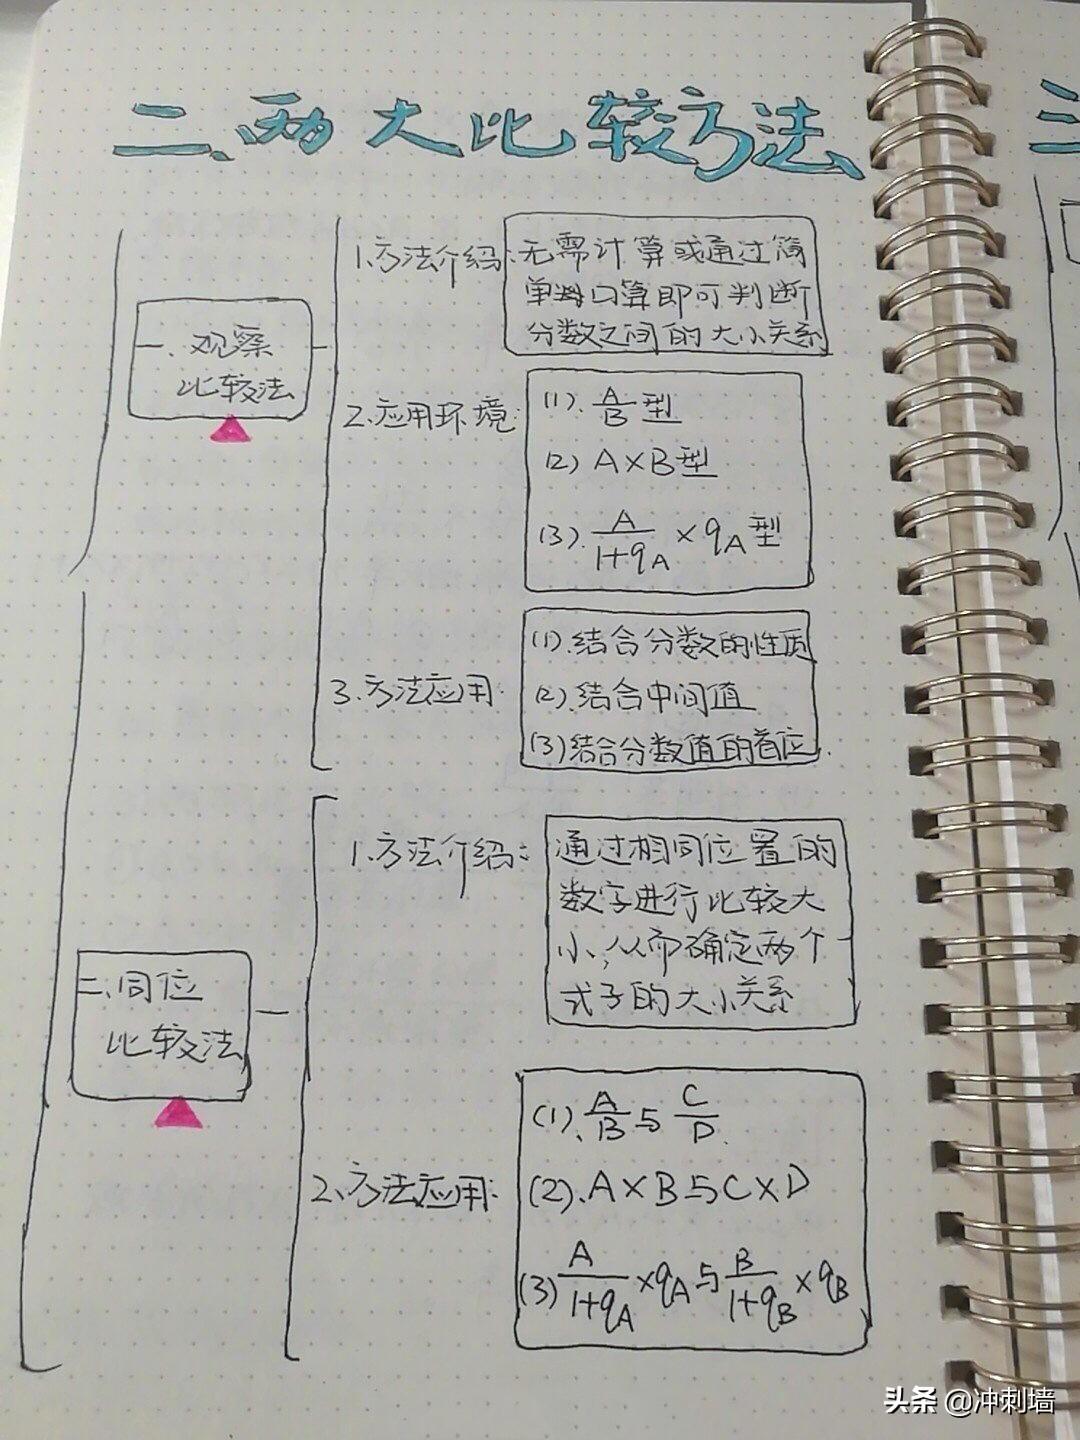 二、两大比较方法
一、观察
比较法
1.方法介绍:
无需计算或通过简
单口算即可判断
分数之间的大小关系
2.应用环境:
(1).A/B型
(2) A×B型
(3).A/(1+qA)×qA型
3.方法应用:
(1).结合分数的性质
(2).结合中间值
(3)结合分数值的首位.
二、同位
比较法
1.方法介绍:
通过相同位置的
数字进行比较大
小,从而确定两个
式子的大小关系
2.方法应用:
(1).A/B与C/D.
(2).A×B与C×D
(3)A/(1+qA)×qA与B/(1+qB)×qB
三
头条 @冲刺墙